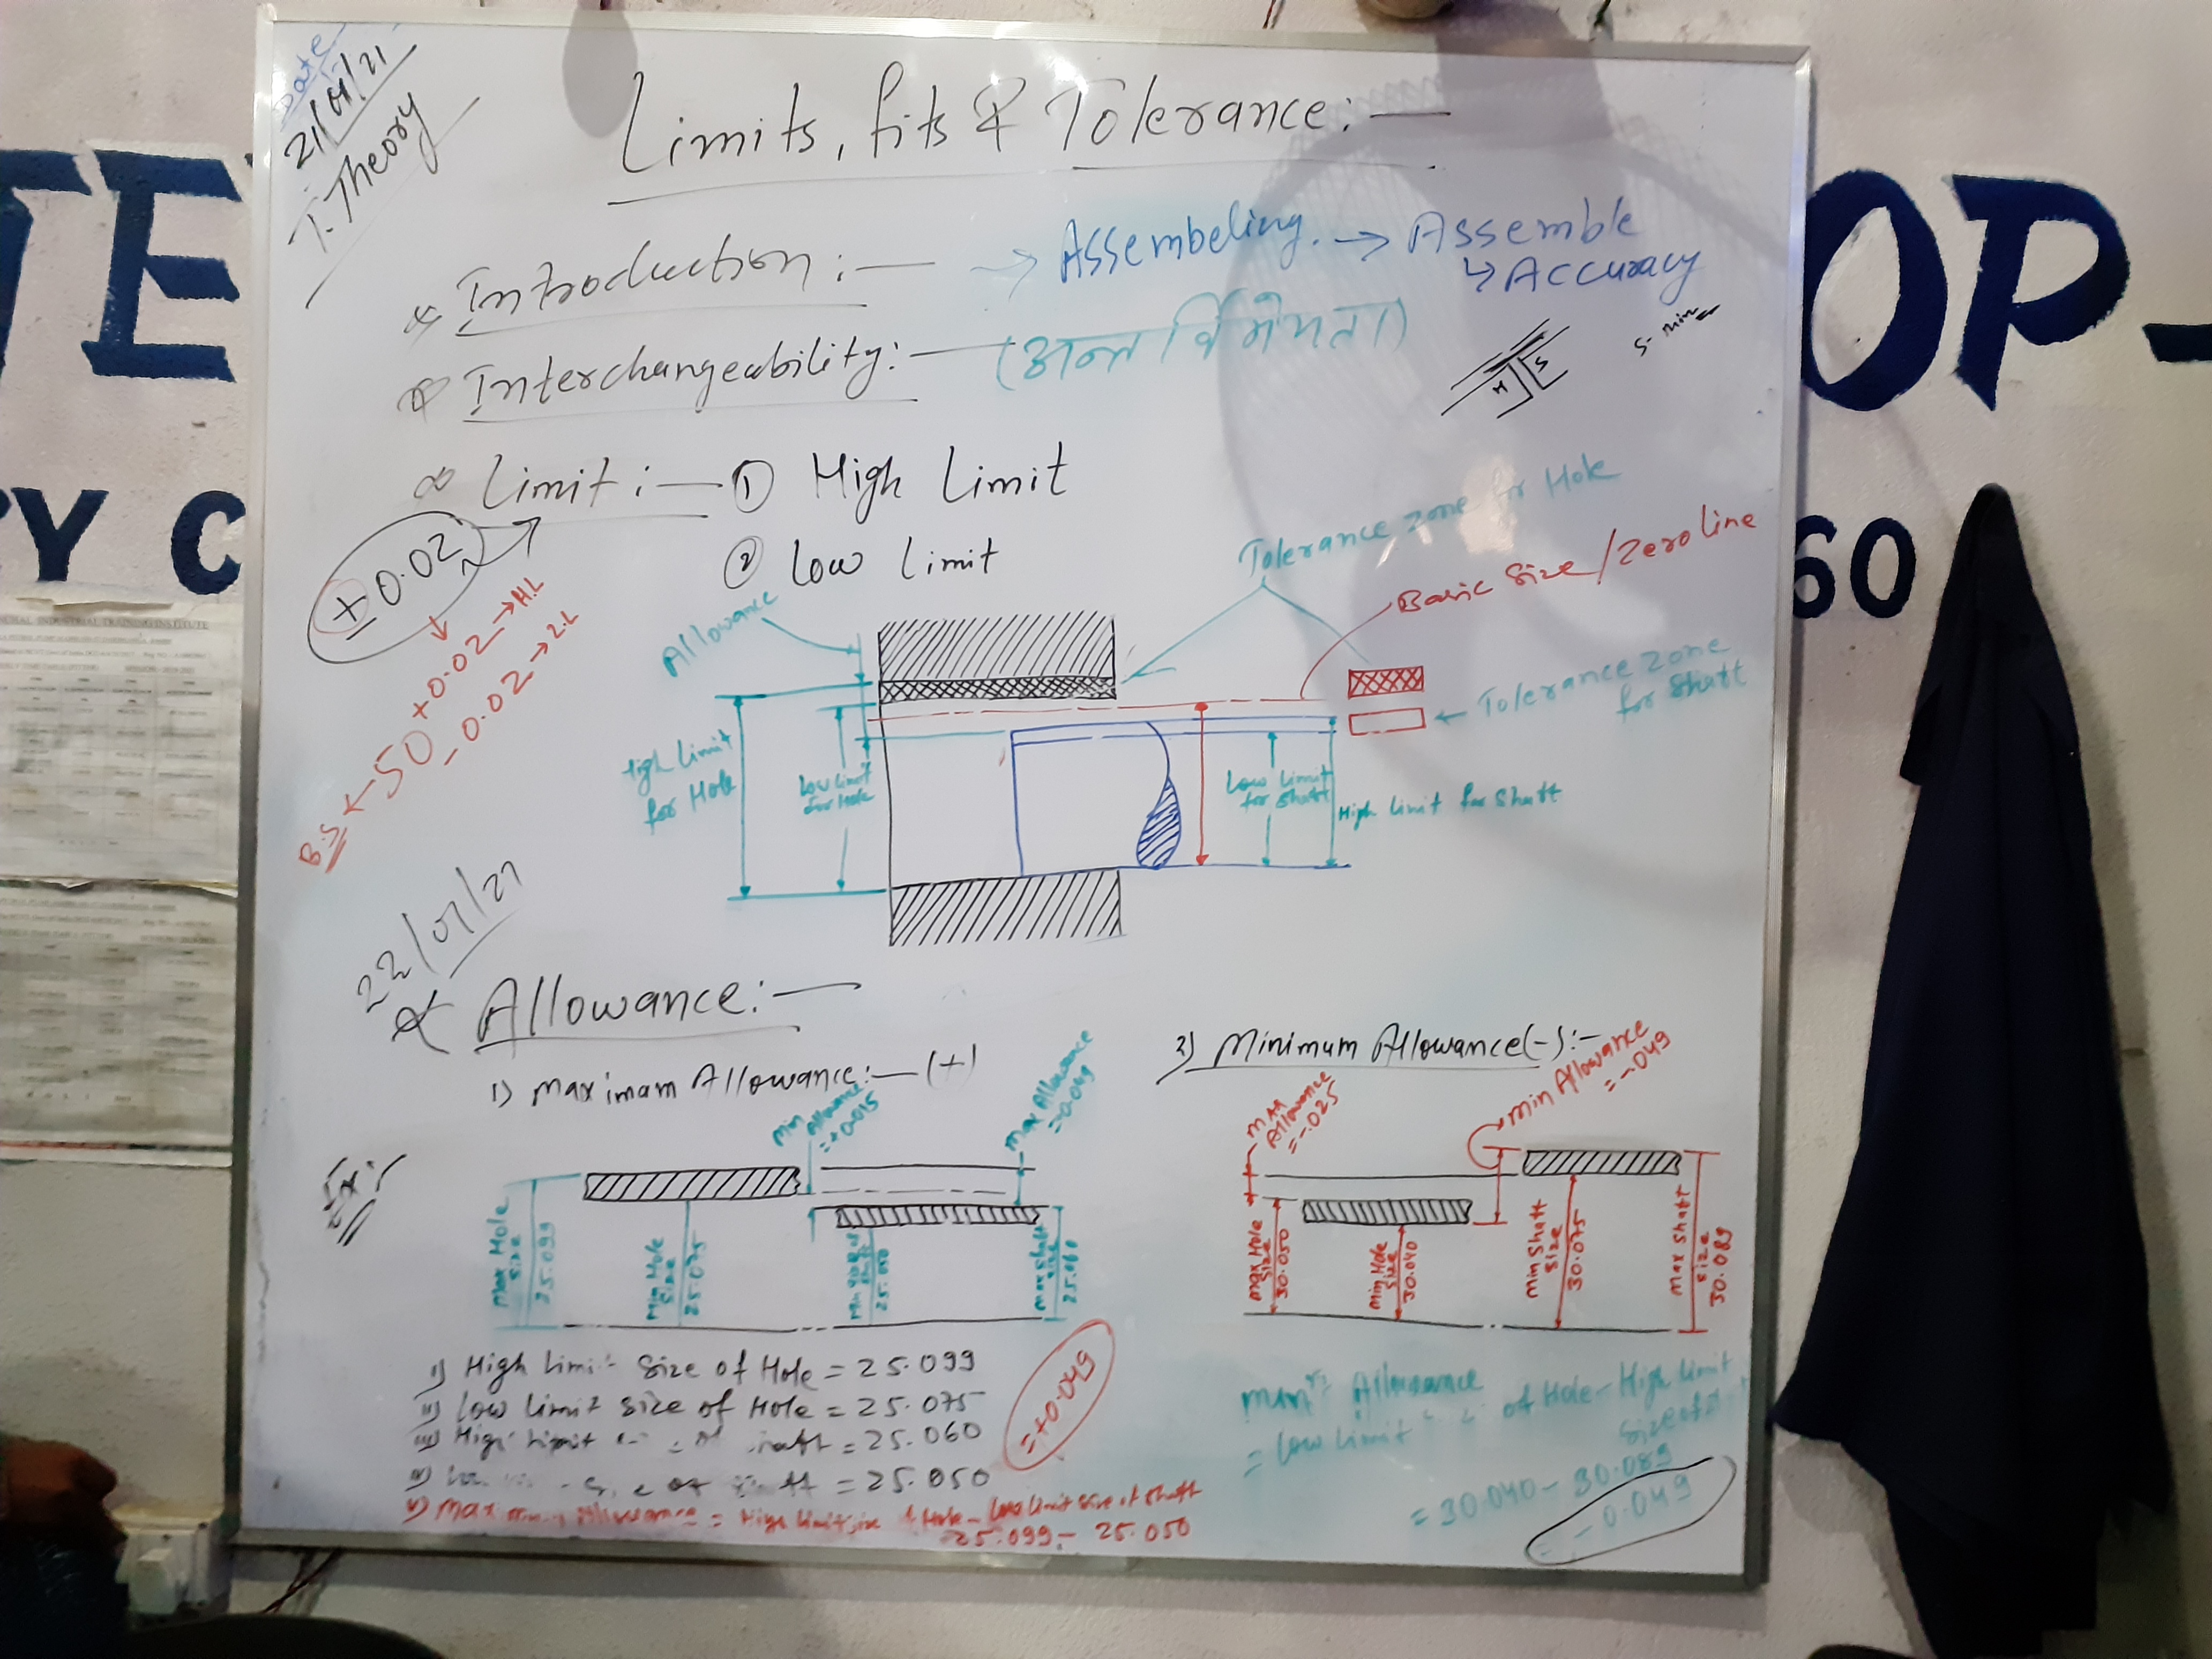 Date
21/01/21
T. Theory
Limits, fits & Tolerance:—
Introduction:— → Assembeling. → Assemble
↳ Accuracy
Interchangeability:— (अन्तर्विनिमेयता)
S-min
H S
Limit:— ① High Limit
② Low Limit
±0.02
+0.02 → H.L
B.S ← 50
-0.02 → L.L
Allowance
Tolerance zone for Hole
Basic Size/Zero line
Tolerance zone
for Shaft
High Limit
for Hole
Low Limit
for Hole
Low Limit
for Shaft
High Limit for Shaft
22/01/21
Allowance:—
1) Maximam Allowance:— (+)
2) Minimum Allowance(-):-
Ex:-
Min
Allowance
=+0.015
Max Allowance
=0.049
Max Hole
Size
25.099
Min Hole
Size
25.075
25.050
Max Shaft
Size
25.060
Max
Allowance
=-.025
Min Allowance
=-.049
Max Hole
Size
30.050
Min Hole
Size
30.040
Min Shaft
Size
30.075
Max Shaft
Size
30.089
i) High Limit Size of Hole = 25.099
ii) Low Limit Size of Hole = 25.075
iii) High Limit = 25.060
iv) = 25.050
v) Maximum Allowance = High Limit size of Hole - Low Limit size of Shaft
25.099 - 25.050
=+0.049
Allowance
= Low Limit of Hole - High Limit
Size of
= 30.040 - 30.089
= -0.049
TE
OP-
Y C
60
INDUSTRIAL TRAINING INSTITUTE